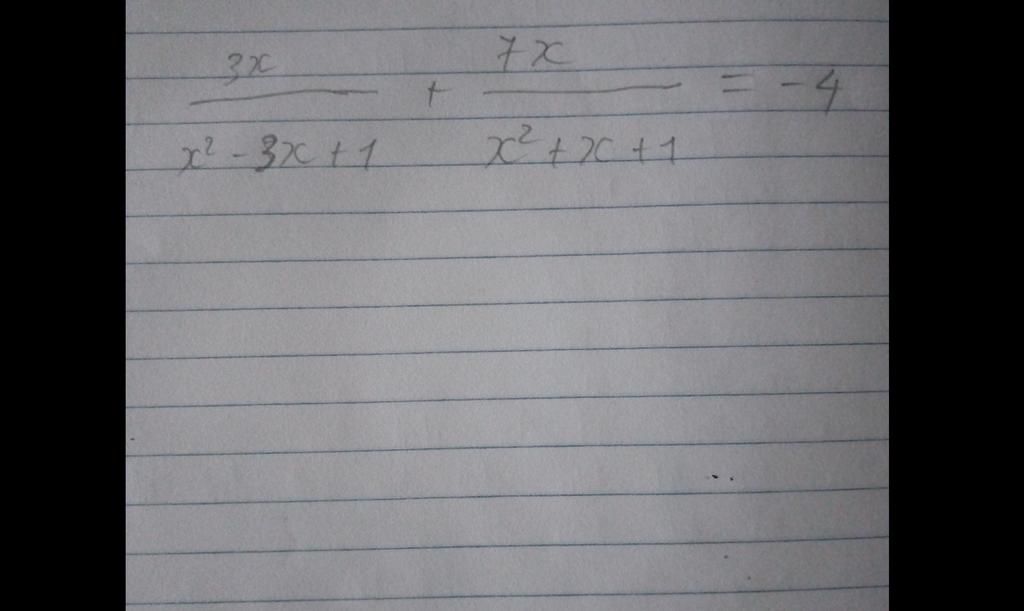 3x/(x² - 3x + 1) + 7x/(x² + x + 1) = -4